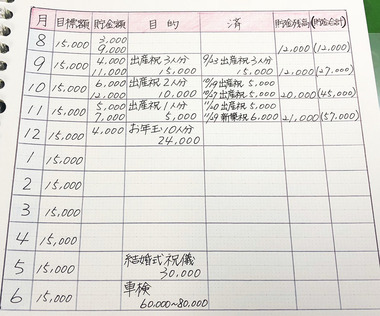 月 目標額 貯金額 目的 済 貯金残高 (貯金合計)
8 15,000 3,000
9,000 12,000 (12,000)
9 15,000 4,000 出産祝3人分 9/23 出産祝3人分
11,000 15,000 15,000 12,000 (27,000)
10 15,000 6,000 出産祝2人分 10/19 出産祝 5,000
12,000 10,000 10/27 出産祝 5,000 20,000 (45,000)
11 15,000 5,000 出産祝1人分 11/20 出産祝 5,000
7,000 5,000 11/29 新築祝 6,000 21,000 (57,000)
12 15,000 4,000 お年玉10人分
24,000
1 15,000
2 15,000
3 15,000
4 15,000
5 15,000 結婚式祝儀
30,000
6 15,000 車検
60,000~80,000